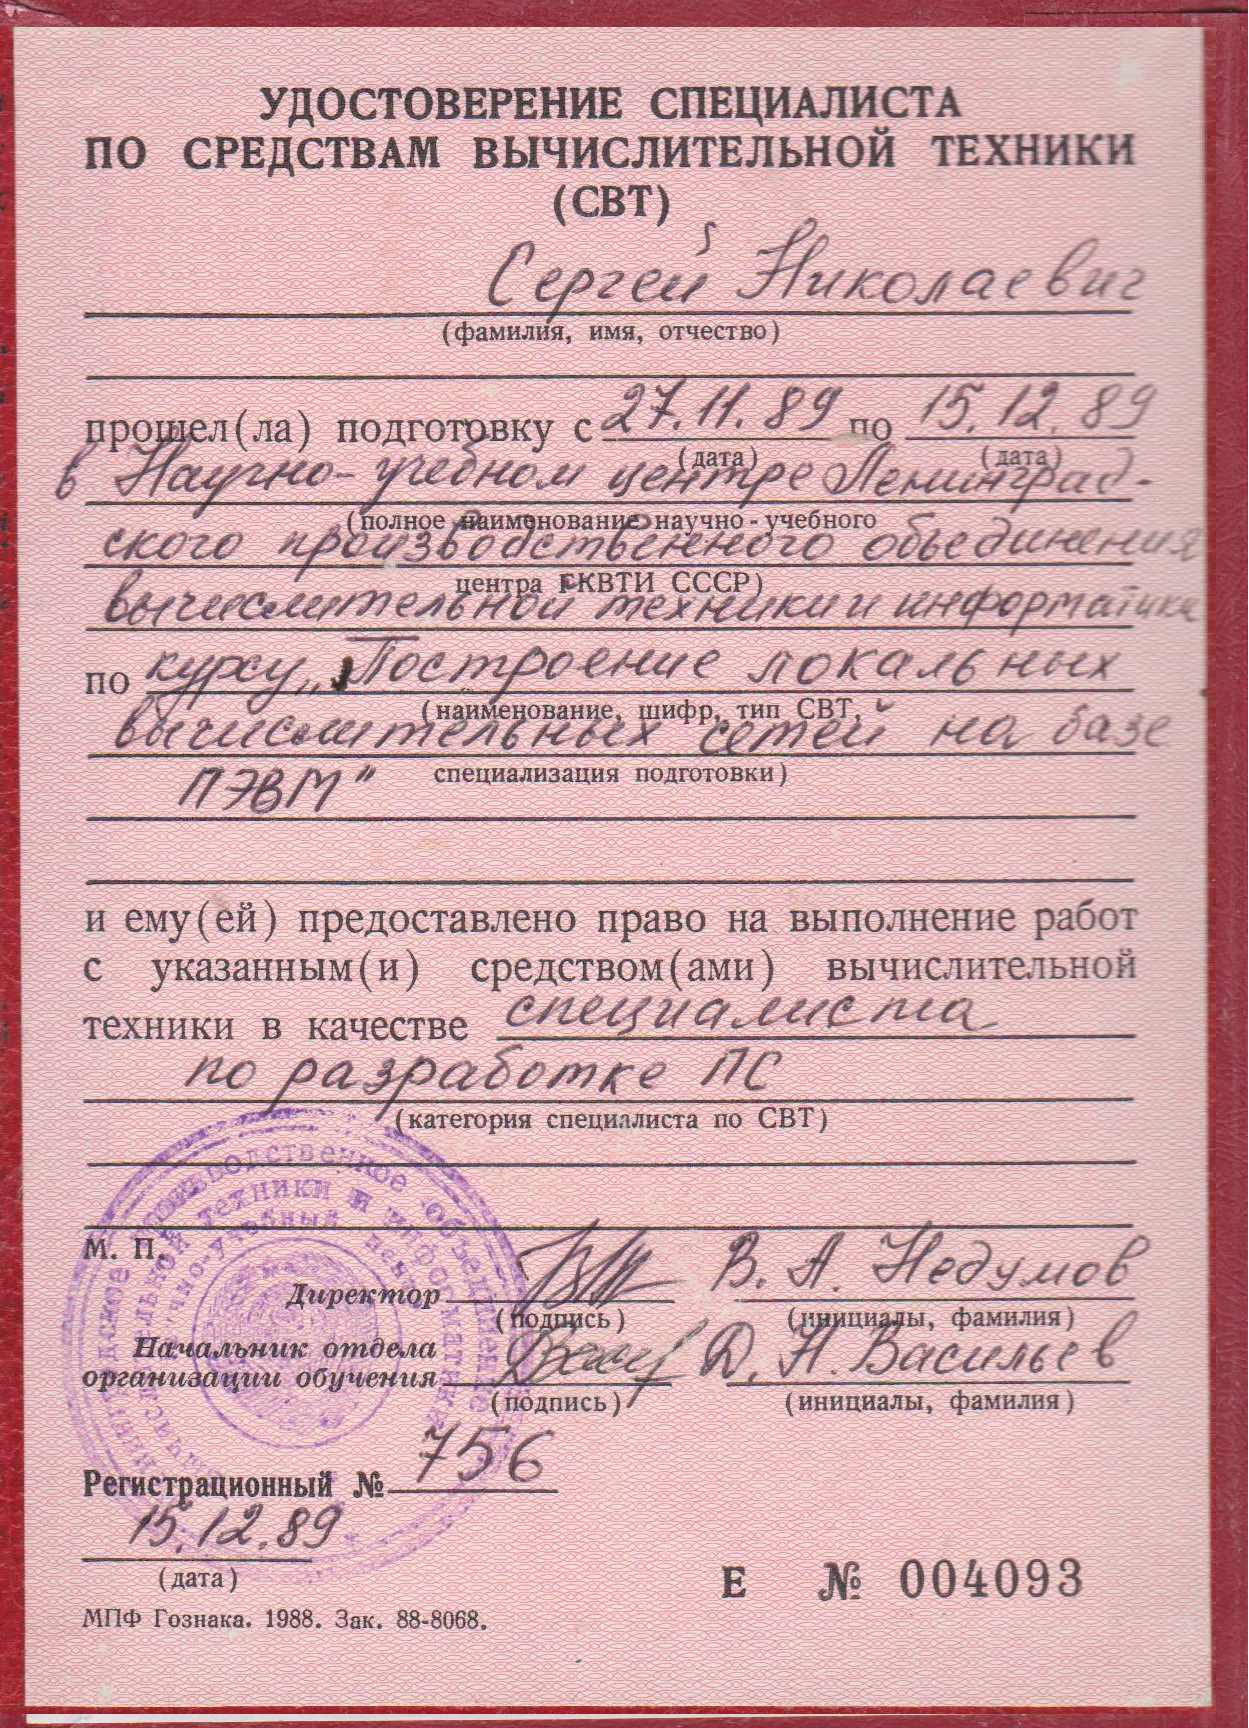 УДОСТОВЕРЕНИЕ СПЕЦИАЛИСТА
ПО СРЕДСТВАМ ВЫЧИСЛИТЕЛЬНОЙ ТЕХНИКИ
(СВТ)
Сергей Николаевич
(фамилия, имя, отчество)
прошел(ла) подготовку с 27.11.89 по 15.12.89
(дата) (дата)
в Научно-учебном центре Ленинград-
(полное наименование научно-учебного
ского производственного объединения
центра ГКВТИ СССР)
вычислительной техники и информатики
по курсу „Построение локальных
(наименование, шифр, тип СВТ,
вычислительных сетей на базе
специализация подготовки)
ПЭВМ"
и ему(ей) предоставлено право на выполнение работ
с указанным(и) средством(ами) вычислительной
техники в качестве специалиста
по разработке ПС
(категория специалиста по СВТ)
М. П.
Директор В. А. Недумов
(подпись) (инициалы, фамилия)
Начальник отдела
организации обучения Д. Н. Васильев
(подпись) (инициалы, фамилия)
Регистрационный № 756
15.12.89
(дата)
Е № 004093
МПФ Гознака. 1988. Зак. 88-8068.